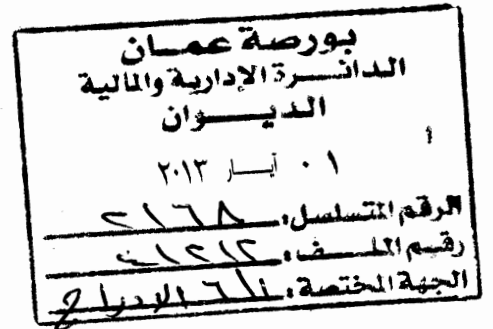 بورصة عمان
الدائرة الإدارية والمالية
الديوان
٠١ أيار ٢٠١٣
الرقم المتسلسل: ٢١٦٨
رقم الملف: ٤١٢١٢
الجهة المختصة: الإدراج